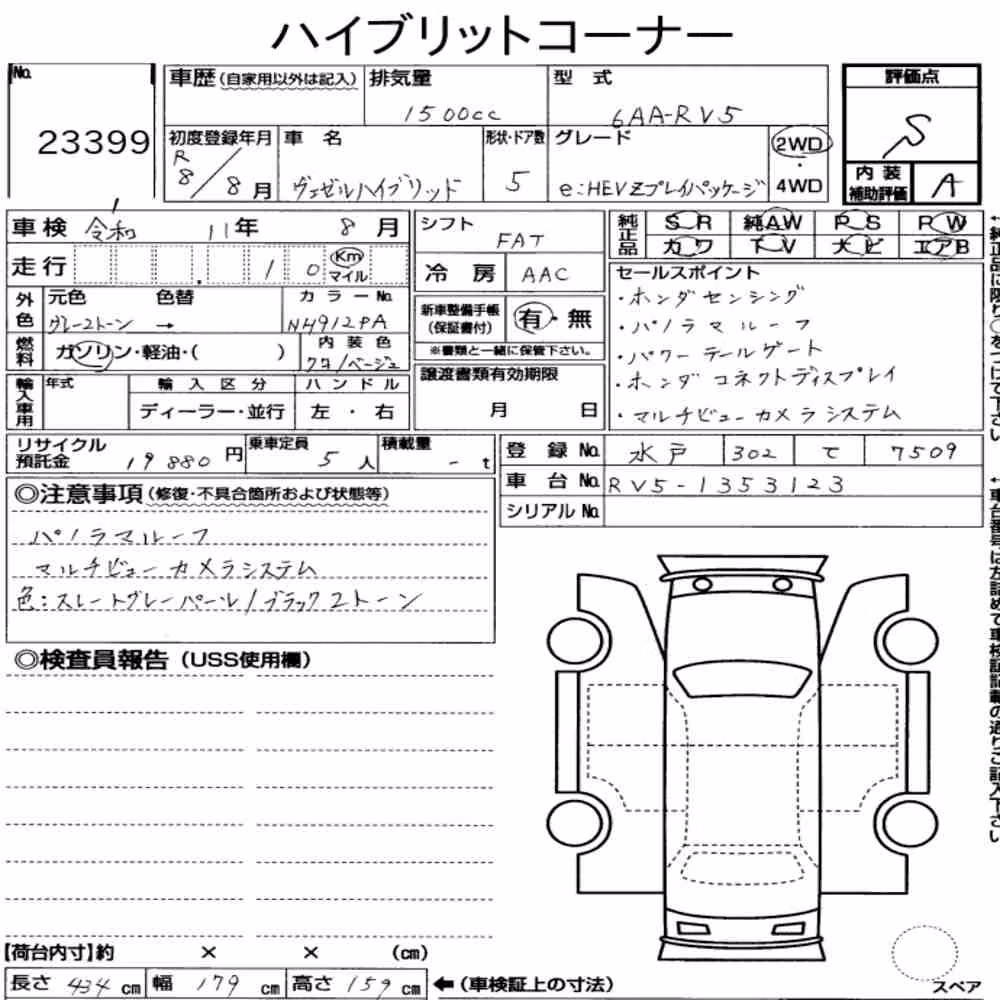 ハイブリットコーナー
No. 23399
車歴(自家用以外は記入)
排気量 1500cc
型式 6AA-RV5
評価点 S
初度登録年月 R8/8月
車名 ヴェゼルハイブリッド
形状・ドア数 5
グレード e:HEV Zプレイパッケージ
2WD・4WD
内装補助評価 A
車検 令和 11年 8月
シフト FAT
純正品 SR 純AW PS PW
カワ TV ナビ エアB
走行 10 Km マイル
冷房 AAC
セールスポイント
・ホンダセンシング
・パノラマルーフ
・パワーテールゲート
・ホンダコネクトディスプレイ
・マルチビューカメラシステム
外色 元色 色替 カラーNo.
グレー2トーン → NH912PA
新車整備手帳(保証書付) 有・無
※書類と一緒に保管下さい。
燃料 ガソリン・軽油・( )
内装色 クロ/ベージュ
譲渡書類有効期限
月 日
輸入車用 年式 輸入区分 ハンドル
ディーラー・並行 左・右
リサイクル預託金 19880円
乗車定員 5人
積載量 - t
登録No. 水戸 302 て 7509
車台No. RV5-1353123
シリアルNo.
◎注意事項(修復・不具合箇所および状態等)
パノラマルーフ
マルチビューカメラシステム
色:スレートグレーパール/ブラック2トーン
◎検査員報告(USS使用欄)
【荷台内寸】約 × × (cm)
長さ 434 cm 幅 179 cm 高さ 159 cm ←(車検証上の寸法)
スペア
←純正品に限り○をつけて下さい
←車台番号は左詰めで車検証記載の通りご記入下さい